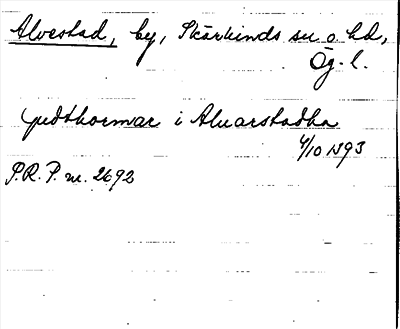 Alvestad, by, Skärkinds sn o. hd,
Ög. l.
gudthormar i Aluarstadha
4/10 1393
P.R.P. nr. 2692